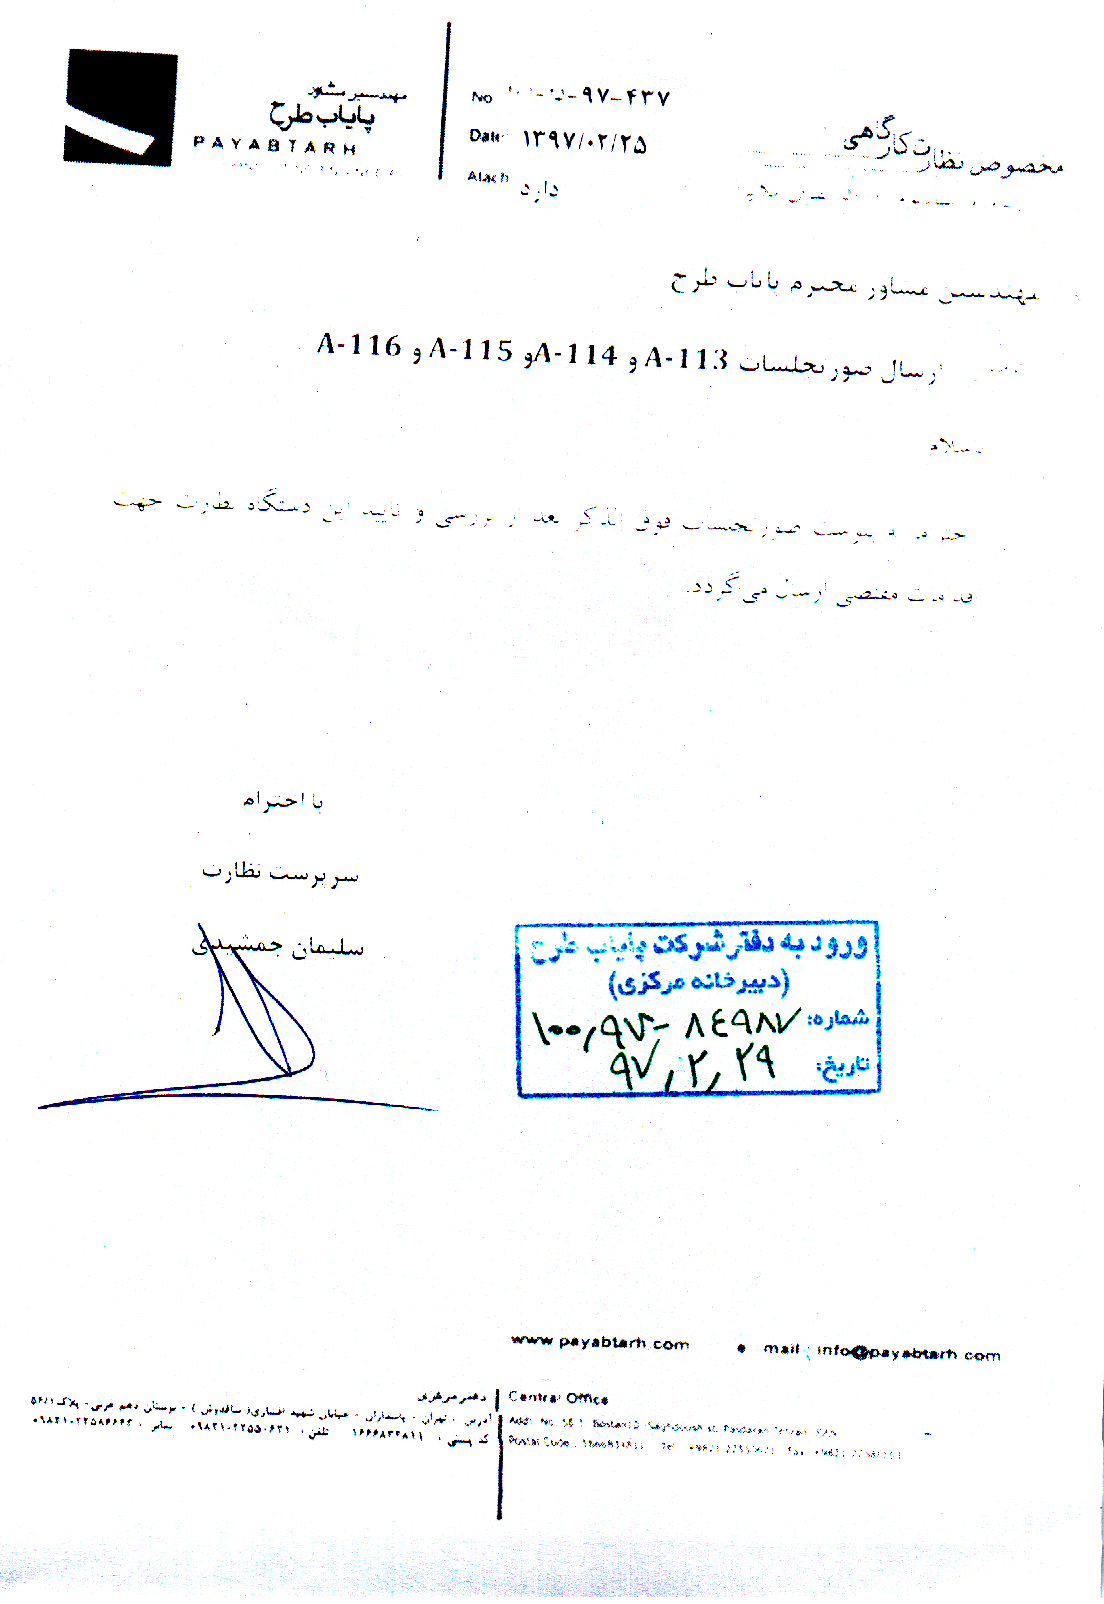 مهندسین مشاور
پایاب طرح
PAYABTARH
No ۹۷-۴۳۷
Date ۱۳۹۷/۰۲/۲۵
Atach دارد
مخصوص نظارت کارگاهی
مهندسین مشاور محترم پایاب طرح
ارسال صورتجلسات A-113 و A-114 و A-115 و A-116
باسلام
پیوست صورتجلسات فوق الذکر بعد از بررسی و تایید این دستگاه نظارت جهت
مقتضی ارسال می‌گردد.
با احترام
سرپرست نظارت
سلیمان جمشیدی
ورود به دفتر شرکت پایاب طرح
(دبیرخانه مرکزی)
شماره: ۱۰۰,۹۷-۸۴۹۸۷
تاریخ: ۹۷,۲,۲۹
www payabtarh com e mail : info@payabtarh com
دفتر مرکزی
آدرس : تهران - پاسداران - خیابان شهید افتخاری( ساقدوش ) - بوستان دهم غربی - پلاک ۵۶/۱
کد پستی : ۱۶۶۶۸۳۴۸۱۱ تلفن :
Central Office
Postal Code :